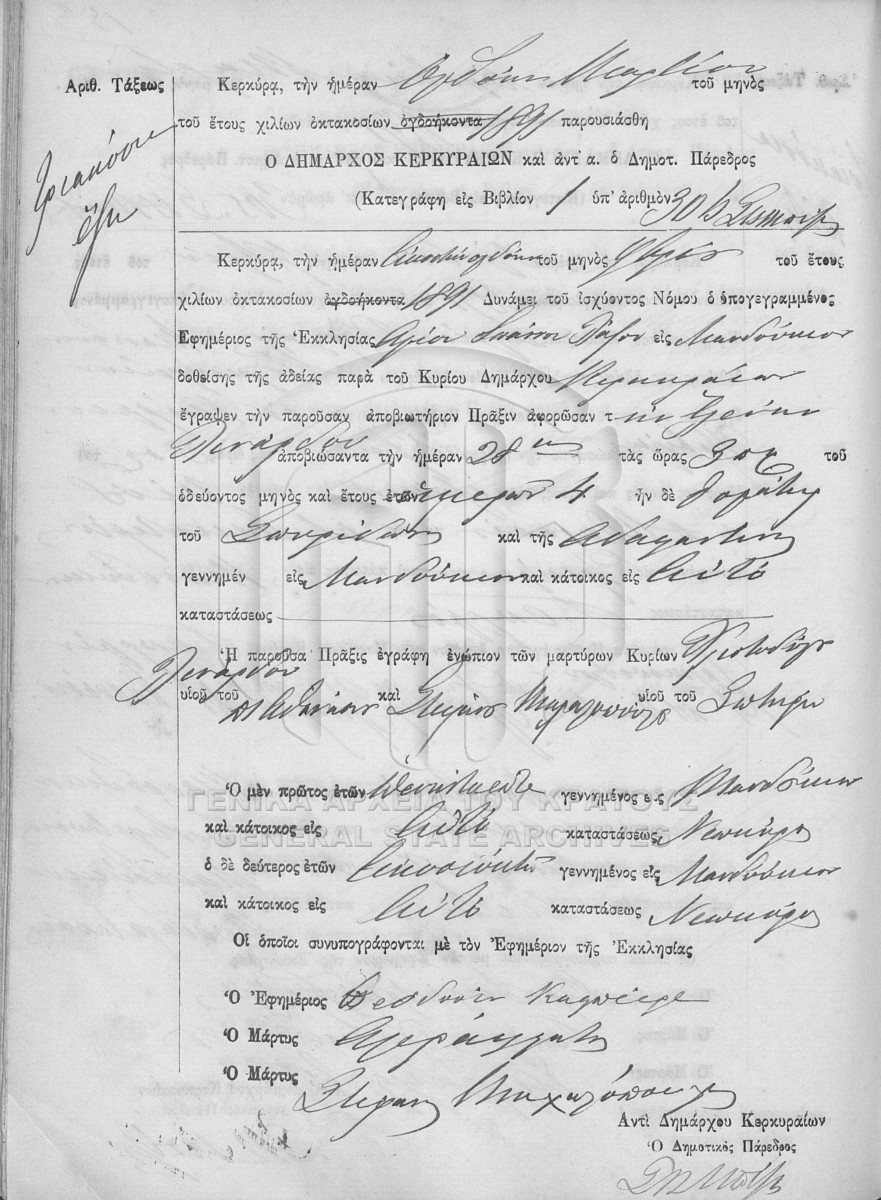 Ἀριθ. Τάξεως
τριακόσια
ἕξη
Κερκύρᾳ, τὴν ἡμέραν Ὀγδόην Μαρτίου τοῦ μηνὸς
τοῦ ἔτους χιλίων ὀκτακοσίων ὀγδοήκοντα 1891 παρουσιάσθη
Ο ΔΗΜΑΡΧΟΣ ΚΕΡΚΥΡΑΙΩΝ καὶ ἀντ' α. ὁ Δημοτ. Πάρεδρος
(Κατεγράφη εἰς Βιβλίον 1 ὑπ' ἀριθμὸν 306
Κερκύρᾳ, τὴν ἡμέραν εἰκοστὴν ὀγδόην τοῦ μηνὸς τοῦ ἔτους
χιλίων ὀκτακοσίων ὀγδοήκοντα 1891 Δυνάμει τοῦ ἰσχύοντος Νόμου ὁ ὑπογεγραμμένος
Ἐφημέριος τῆς Ἐκκλησίας Ἁγίου εἰς Μανδούκιον
δοθείσης τῆς ἀδείας παρὰ τοῦ Κυρίου Δημάρχου Κερκυραίων
ἔγραψεν τὴν παροῦσαν ἀποβιωτήριον Πρᾶξιν ἀφορῶσαν τ ὴν Ἑλένην
Λινάρδου ἀποβιώσαντα τὴν ἡμέραν 28ην τὰς ὥρας 3 τοῦ
ὁδεύοντος μηνὸς καὶ ἔτους ἐτῶν ἡμερῶν 4 ἦν δὲ θυγάτηρ
τοῦ Σπυρίδωνος καὶ τῆς Ἀδαμαντίνης
γεννημέν εἰς Μανδούκιον καὶ κάτοικος εἰς Αὐτό
καταστάσεως
Ἡ παροῦσα Πρᾶξις ἐγράφη ἐνώπιον τῶν μαρτύρων Κυρίων Χριστοδούλου
Λινάρδου
υἱοῦ τοῦ π Ἀθανάσιου καὶ Στεφάνου Μιχαλοπούλου υἱοῦ τοῦ Σωτηρίου
Ὁ μὲν πρῶτος ἐτῶν πενήντα γεννημένος εἰς Μανδούκιον
καὶ κάτοικος εἰς Αὐτό καταστάσεως Νεωκόρος
ὁ δὲ δεύτερος ἐτῶν εἰκοσιοκτώ γεννημένος εἰς Μανδούκιον
καὶ κάτοικος εἰς Αὐτό καταστάσεως Νεωκόρος
Οἱ ὁποῖοι συνυπογράφονται μὲ τὸν Ἐφημέριον τῆς Ἐκκλησίας
Ὁ Ἐφημέριος
Ὁ Μάρτυς Ἀγράμματος
Ὁ Μάρτυς Στέφανος Μιχαλόπουλος
Αντὶ Δημάρχου Κερκυραίων
Ὁ Δημοτικὸς Πάρεδρος
ΓΕΝΙΚΑ ΑΡΧΕΙΑ ΤΟΥ ΚΡΑΤΟΥΣ
GENERAL STATE ARCHIVES